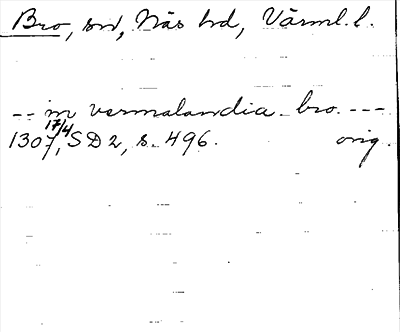 Bro, sn, Näs hd, Värml. l.
-- in vermalandia. bro. ---
1307 17/4, SD 2, s. 496. orig.